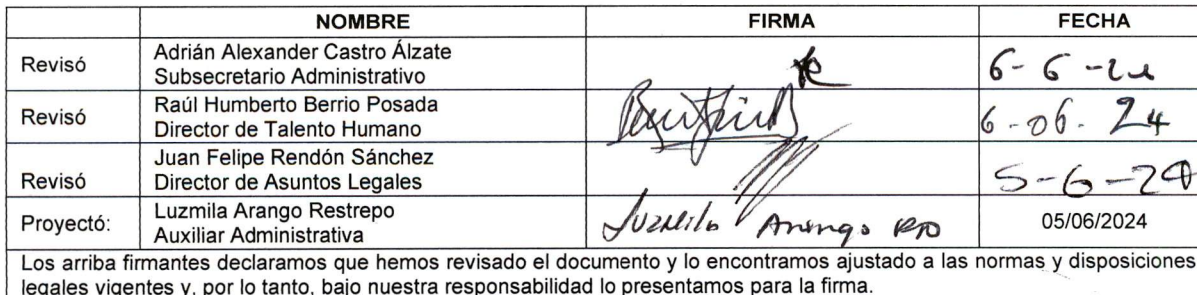 NOMBRE FIRMA FECHA
Revisó Adrián Alexander Castro Álzate
Subsecretario Administrativo 6-6-24
Revisó Raúl Humberto Berrio Posada
Director de Talento Humano 6-06-24
Juan Felipe Rendón Sánchez
Revisó Director de Asuntos Legales 5-6-24
Proyectó: Luzmila Arango Restrepo
Auxiliar Administrativa Luzmila Arango 05/06/2024
Los arriba firmantes declaramos que hemos revisado el documento y lo encontramos ajustado a las normas y disposiciones
legales vigentes y, por lo tanto, bajo nuestra responsabilidad lo presentamos para la firma.